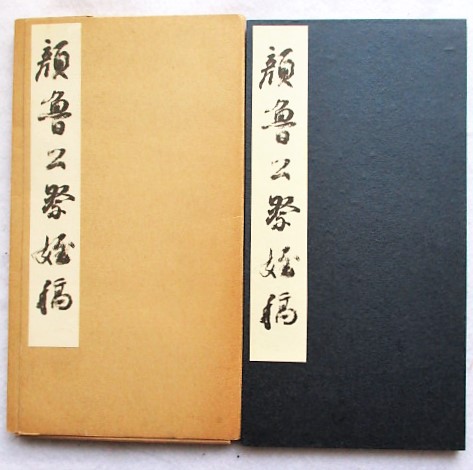 顔魯公祭姪稿
顔魯公祭姪稿